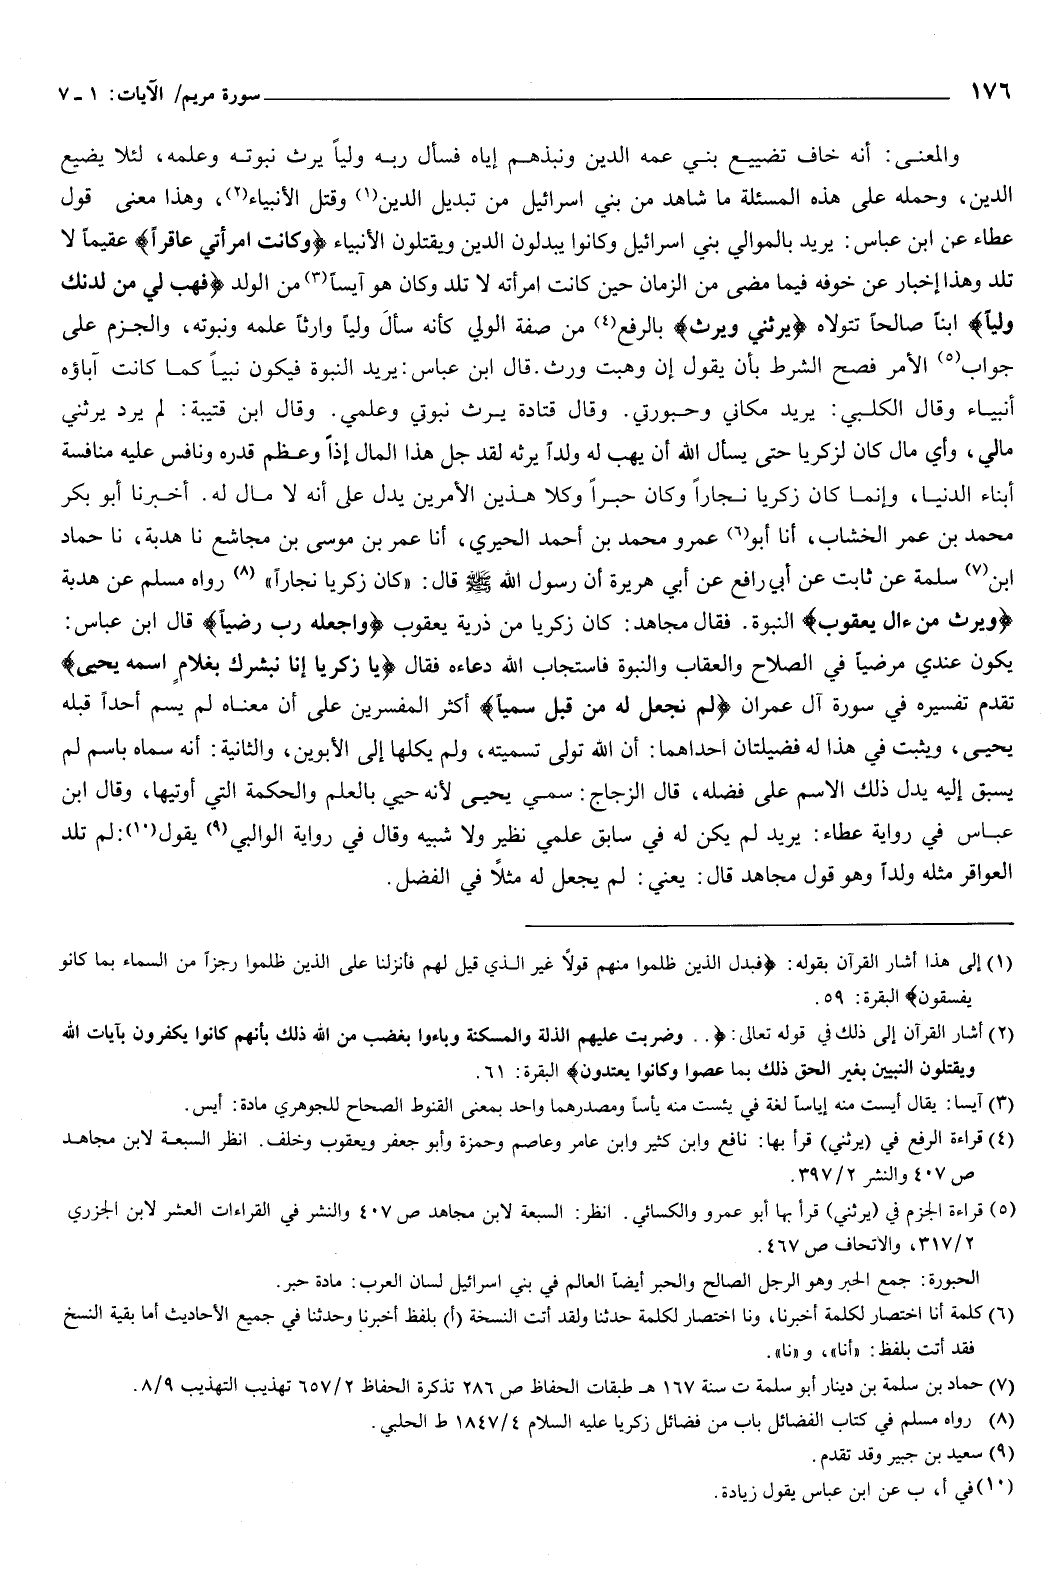 ١٧٦ سورة مريم/ الآيات: ١ ـ ٧
والمعنى: أنه خاف تضييع بني عمه الدين ونبذهم إياه فسأل ربه ولياً يرث نبوته وعلمه، لئلا يضيع
الدين، وحمله على هذه المسئلة ما شاهد من بني اسرائيل من تبديل الدين(١) وقتل الأنبياء(٢)، وهذا معنى قول
عطاء عن ابن عباس: يريد بالموالي بني اسرائيل وكانوا يبدلون الدين ويقتلون الأنبياء ﴿وكانت امرأتي عاقراً﴾ عقيماً لا
تلد وهذا إخبار عن خوفه فيما مضى من الزمان حين كانت امرأته لا تلد وكان هو آيساً(٣) من الولد ﴿فهب لي من لدنك
ولياً﴾ ابناً صالحاً تتولاه ﴿يرثني ويرث﴾ بالرفع(٤) من صفة الولي كأنه سألَ ولياً وارثاً علمه ونبوته، والجزم على
جواب(٥) الأمر فصح الشرط بأن يقول إن وهبت ورث. قال ابن عباس: يريد النبوة فيكون نبياً كما كانت آباؤه
أنبياء وقال الكلبي: يريد مكاني وحبورتي. وقال قتادة يرث نبوتي وعلمي. وقال ابن قتيبة: لم يرد يرثني
مالي، وأي مال كان لزكريا حتى يسأل الله أن يهب له ولداً يرثه لقد جل هذا المال إذاً وعظم قدره ونافس عليه منافسة
أبناء الدنيا، وإنما كان زكريا نجاراً وكان حبراً وكلا هذين الأمرين يدل على أنه لا مال له. أخبرنا أبو بكر
محمد بن عمر الخشاب، أنا أبو(٦) عمرو محمد بن أحمد الحيري، أنا عمر بن موسى بن مجاشع نا هدبة، نا حماد
ابن(٧) سلمة عن ثابت عن أبي رافع عن أبي هريرة أن رسول الله ﷺ قال: «كان زكريا نجاراً» (٨) رواه مسلم عن هدبة
﴿ويرث من ءال يعقوب﴾ النبوة. فقال مجاهد: كان زكريا من ذرية يعقوب ﴿واجعله رب رضياً﴾ قال ابن عباس:
يكون عندي مرضياً في الصلاح والعقاب والنبوة فاستجاب الله دعاءه فقال ﴿يا زكريا إنا نبشرك بغلامٍ اسمه يحيى﴾
تقدم تفسيره في سورة آل عمران ﴿لم نجعل له من قبل سمياً﴾ أكثر المفسرين على أن معناه لم يسم أحداً قبله
يحيى، ويثبت في هذا له فضيلتان أحداهما: أن الله تولى تسميته، ولم يكلها إلى الأبوين، والثانية: أنه سماه باسم لم
يسبق إليه يدل ذلك الاسم على فضله، قال الزجاج: سمي يحيى لأنه حيي بالعلم والحكمة التي أوتيها، وقال ابن
عباس في رواية عطاء: يريد لم يكن له في سابق علمي نظير ولا شبيه وقال في رواية الوالبي(٩) يقول(١٠): لم تلد
العواقر مثله ولداً وهو قول مجاهد قال: يعني: لم يجعل له مثلًا في الفضل.
(١) إلى هذا أشار القرآن بقوله: ﴿فبدل الذين ظلموا منهم قولاً غير الذي قيل لهم فأنزلنا على الذين ظلموا رجزاً من السماء بما كانو
يفسقون﴾ البقرة: ٥٩.
(٢) أشار القرآن إلى ذلك في قوله تعالى: ﴿.. وضربت عليهم الذلة والمسكنة وباءوا بغضب من الله ذلك بأنهم كانوا يكفرون بآيات الله
ويقتلون النبيين بغير الحق ذلك بما عصوا وكانوا يعتدون﴾ البقرة: ٦١.
(٣) آيسا: يقال أيست منه إياساً لغة في يئست منه يأساً ومصدرهما واحد بمعنى القنوط الصحاح للجوهري مادة: أيس.
(٤) قراءة الرفع في (يرثني) قرأ بها: نافع وابن كثير وابن عامر وعاصم وحمزة وأبو جعفر ويعقوب وخلف. انظر السبعة لابن مجاهد
ص ٤٠٧ والنشر ٣٩٧/٢.
(٥) قراءة الجزم في (يرثني) قرأ بها أبو عمرو والكسائي. انظر: السبعة لابن مجاهد ص ٤٠٧ والنشر في القراءات العشر لابن الجزري
٣١٧/٢، والاتحاف ص ٤٦٧.
الحبورة: جمع الحبر وهو الرجل الصالح والحبر أيضاً العالم في بني اسرائيل لسان العرب: مادة حبر.
(٦) كلمة أنا اختصار لكلمة أخبرنا، ونا اختصار لكلمة حدثنا ولقد أتت النسخة (أ) بلفظ أخبرنا وحدثنا في جميع الأحاديث أما بقية النسخ
فقد أتت بلفظ: «أنا»، و «نا».
(٧) حماد بن سلمة بن دينار أبو سلمة ت سنة ١٦٧ هـ طبقات الحفاظ ص ٢٨٦ تذكرة الحفاظ ٦٥٧/٢ تهذيب التهذيب ٨/٩.
(٨) رواه مسلم في كتاب الفضائل باب من فضائل زكريا عليه السلام ١٨٤٧/٤ ط الحلبي.
(٩) سعيد بن جبير وقد تقدم.
(١٠) في أ، ب عن ابن عباس يقول زيادة.